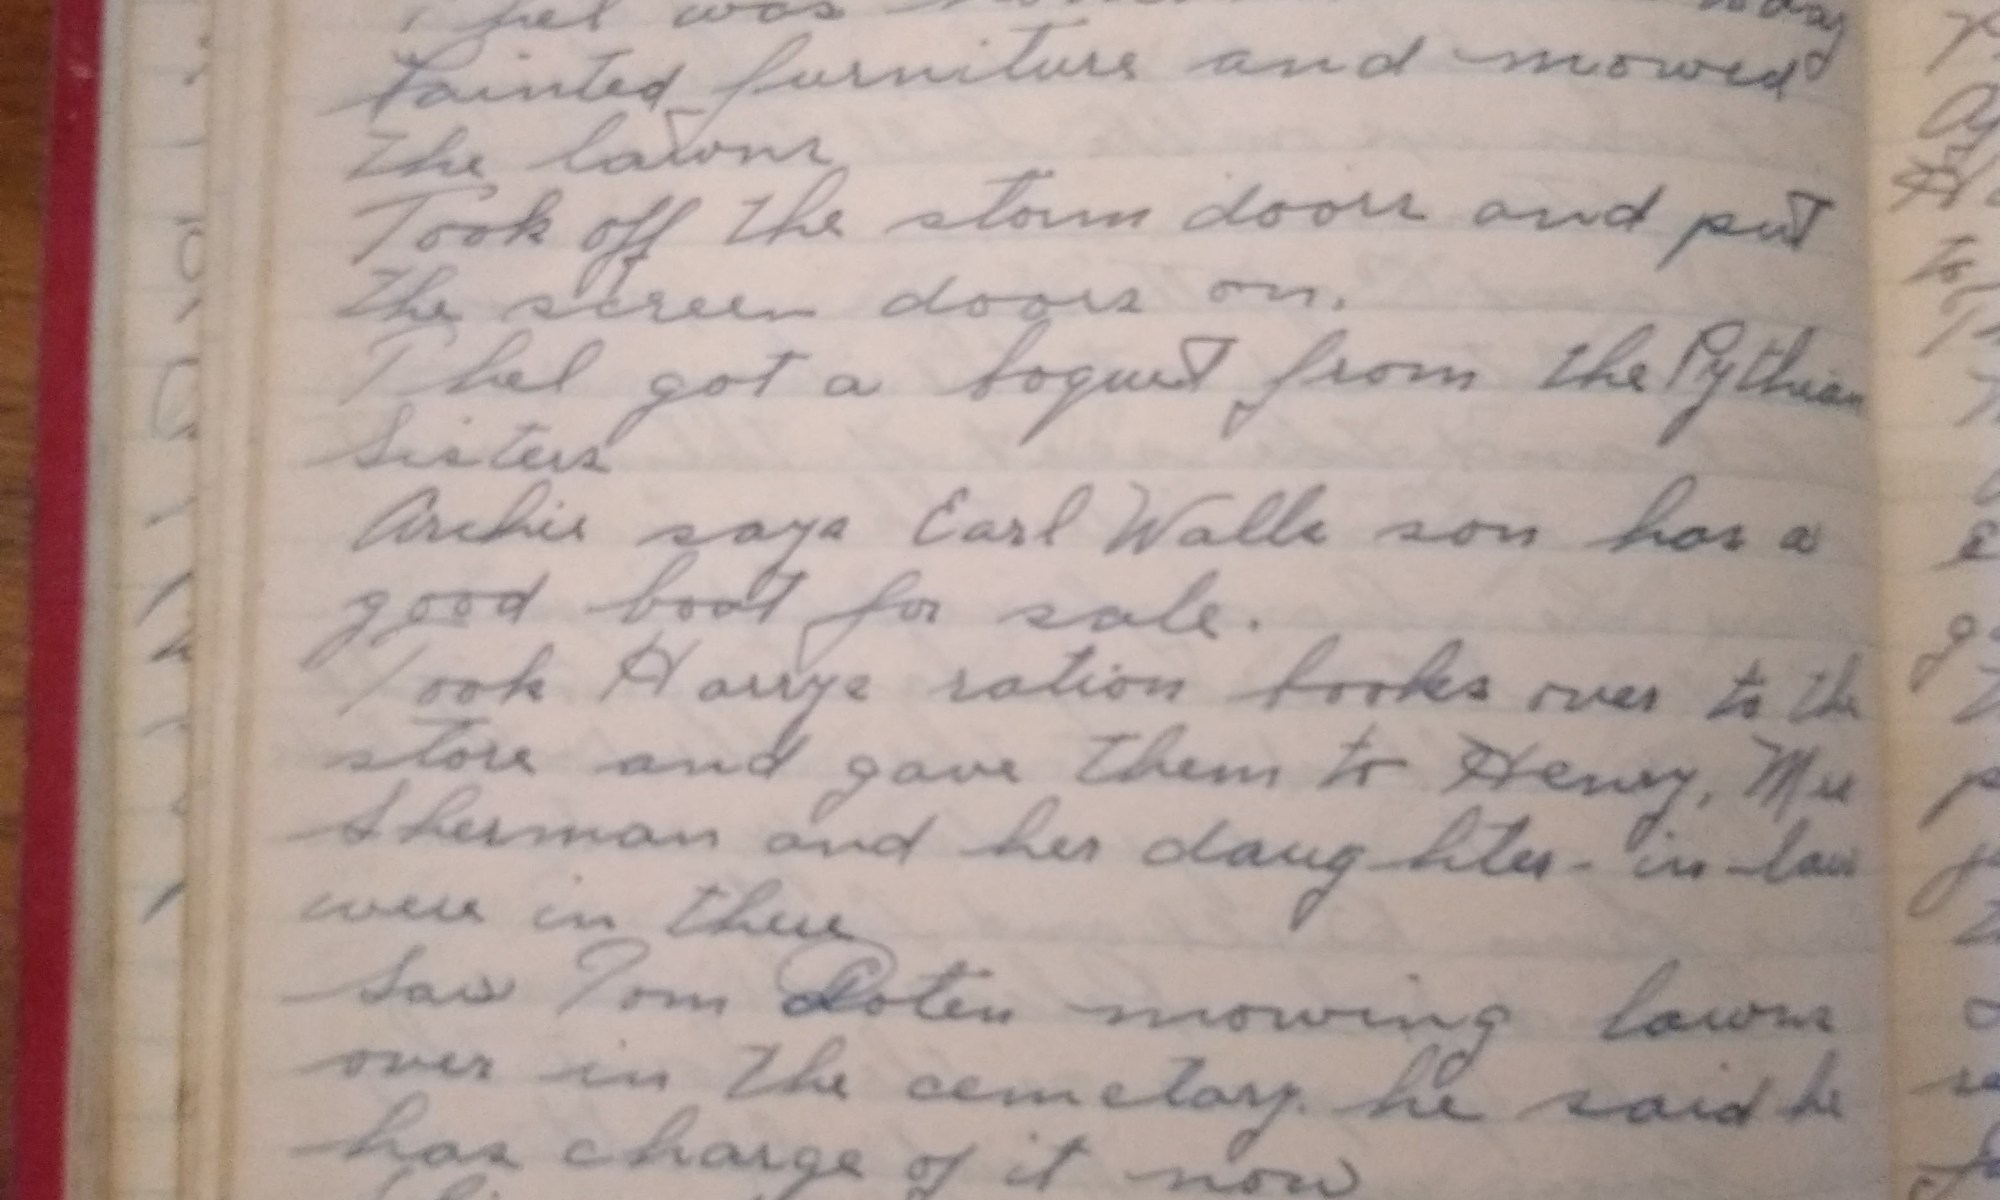 Thel was today
Painted furniture and mowed
the lawns
Took off the storm doors and put
the screen doors on.
Thel got a boquet from the Pythian
Sisters
Archie says Earl Walls son has a
good boat for sale.
Took Harrys ration books over to the
store and gave them to Henry, Mrs
Sherman and her daughter-in-law
were in there
Saw Tom Doten mowing lawns
over in the cemetary. he said he
has charge of it now